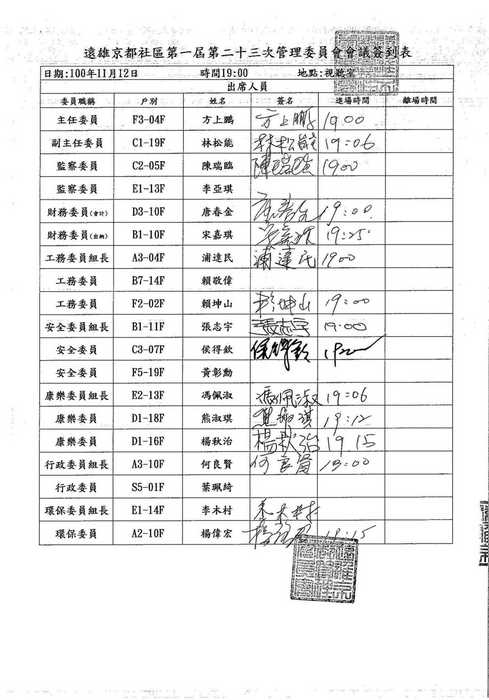 遠雄京都社區第一屆第二十三次管理委員會會議簽到表
日期:100年11月12日 時間19:00 地點:視聽室
出席人員
委員職稱 戶別 姓名 簽名 進場時間 離場時間
主任委員 F3-04F 方上鵬 方上鵬 19:00
副主任委員 C1-19F 林松能 林松能 19:06
監察委員 C2-05F 陳瑞臨 陳瑞臨 1900
監察委員 E1-13F 李亞琪
財務委員(會計) D3-10F 唐春金 唐春金 19:00
財務委員(出納) B1-10F 宋嘉琪 宋嘉琪 19:25
工務委員組長 A3-04F 浦達民 浦達民 1900
工務委員 B7-14F 賴敬偉
工務委員 F2-02F 賴坤山 坤山 19:00
安全委員組長 B1-11F 張志宇 張志宇 19:00
安全委員 C3-07F 侯得欽 侯得欽
安全委員 F5-19F 黃彰勳
康樂委員組長 E2-13F 馮佩淑 馮佩淑 19:06
康樂委員 D1-18F 熊淑琪 熊淑琪 19:12
康樂委員 D1-16F 楊秋治 楊秋治 19 15
行政委員組長 A3-10F 何良賢 何良賢 19:00
行政委員 S5-01F 葉珮綺
環保委員組長 E1-14F 李木村 李木村
環保委員 A2-10F 楊偉宏 19:15